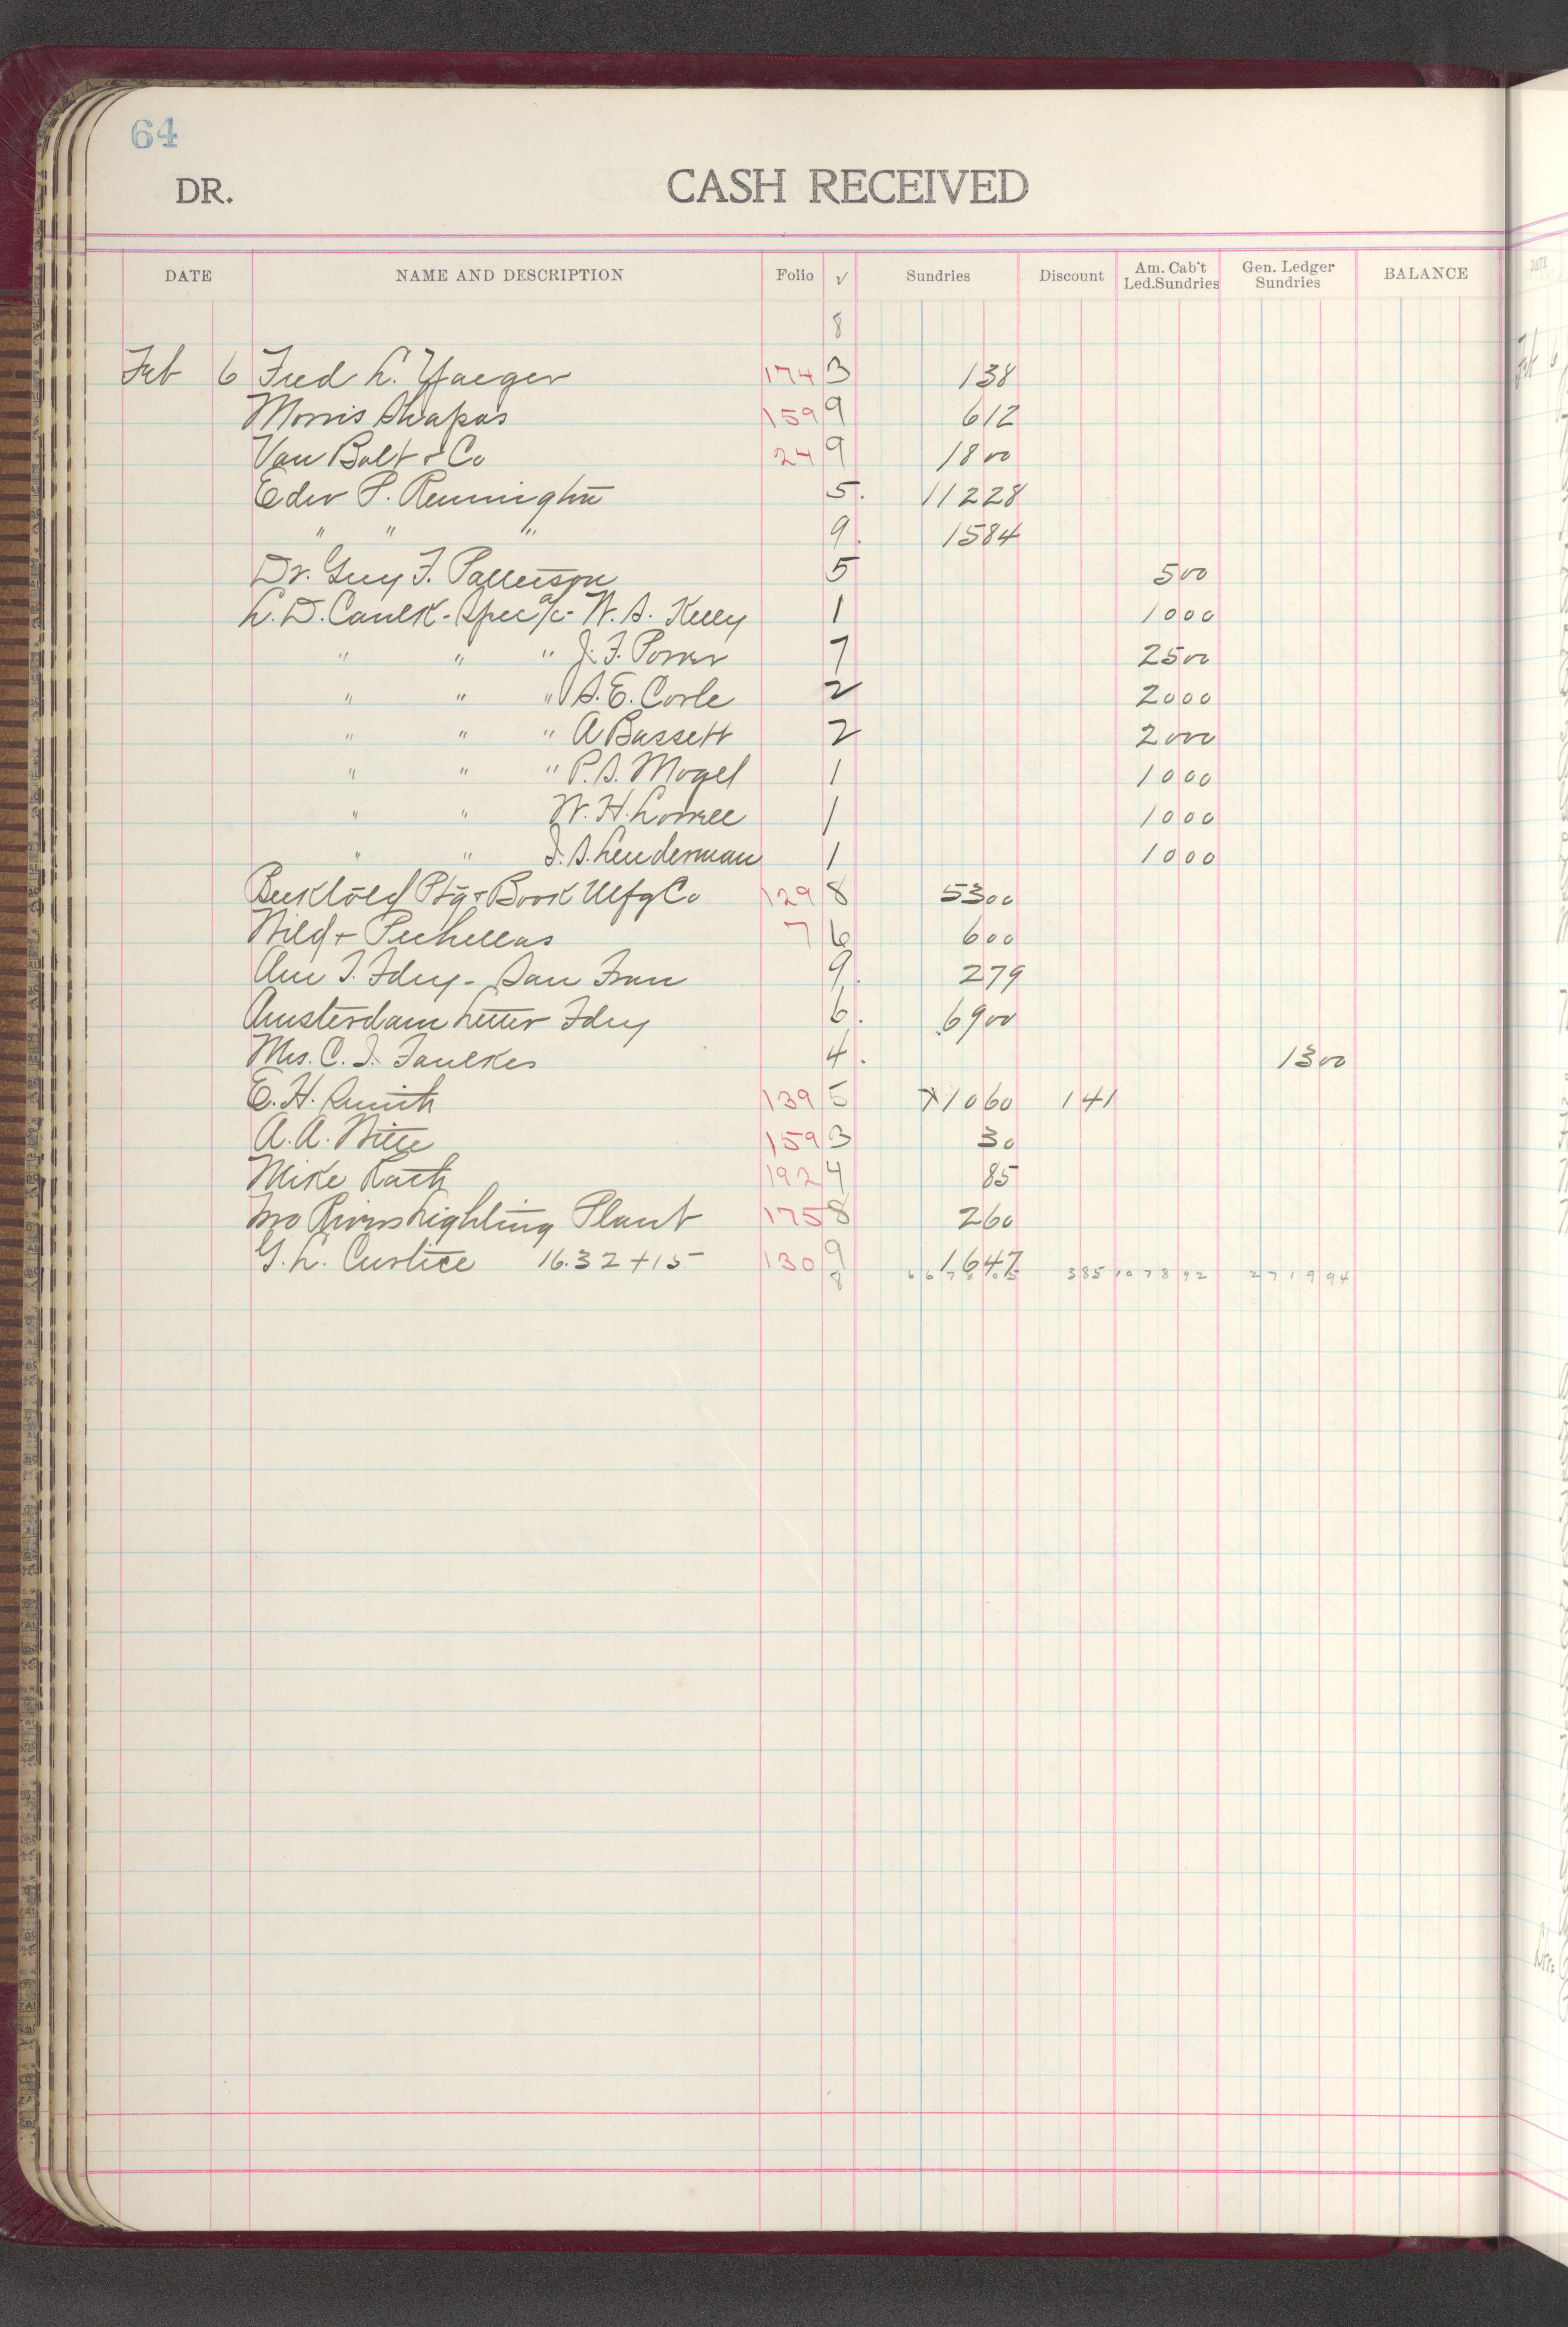 64
DR. CASH RECEIVED
DATE NAME AND DESCRIPTION Folio √ Sundries Discount Am. Cab't Led.Sundries Gen. Ledger Sundries BALANCE
8
Feb 6 Fred L. Yaeger 174 3 1 38
Morris Shapas 159 9 6 12
Van Bolt & Co 24 9 18 00
Edw P. Remington 5. 112 28
" " " 9. 15 84
Dr. Guy F. Patterson 5 5 00
L. D. Caulk - Spec a/c - W. S. Kelly 1 10 00
" " " J. F. Porter 7 25 00
" " " S. E. Corle 2 20 00
" " " A Bassett 2 20 00
" " " P. S. Mogel 1 10 00
" " W. H. 1 10 00
" " S. Lenderman 1 10 00
Ptg & Book Mfg Co 129 8 53 00
Wild & 7 6 6 00
Am T. Fdry - San Fran 9. 2 79
Amsterdam Letter Fdry 6. 69 00
Mrs. C. J. Faulkes 4. 13 00
E. H. Smith 139 5 10 60 1 41
A. A. 159 3 30
Mike Rath 192 4 85
Two Rivers Lighting Plant 175 8 2 60
G. L. Curtice 16.32 + 15 130 9 16 47
8 3 85 1078 92 2719 94